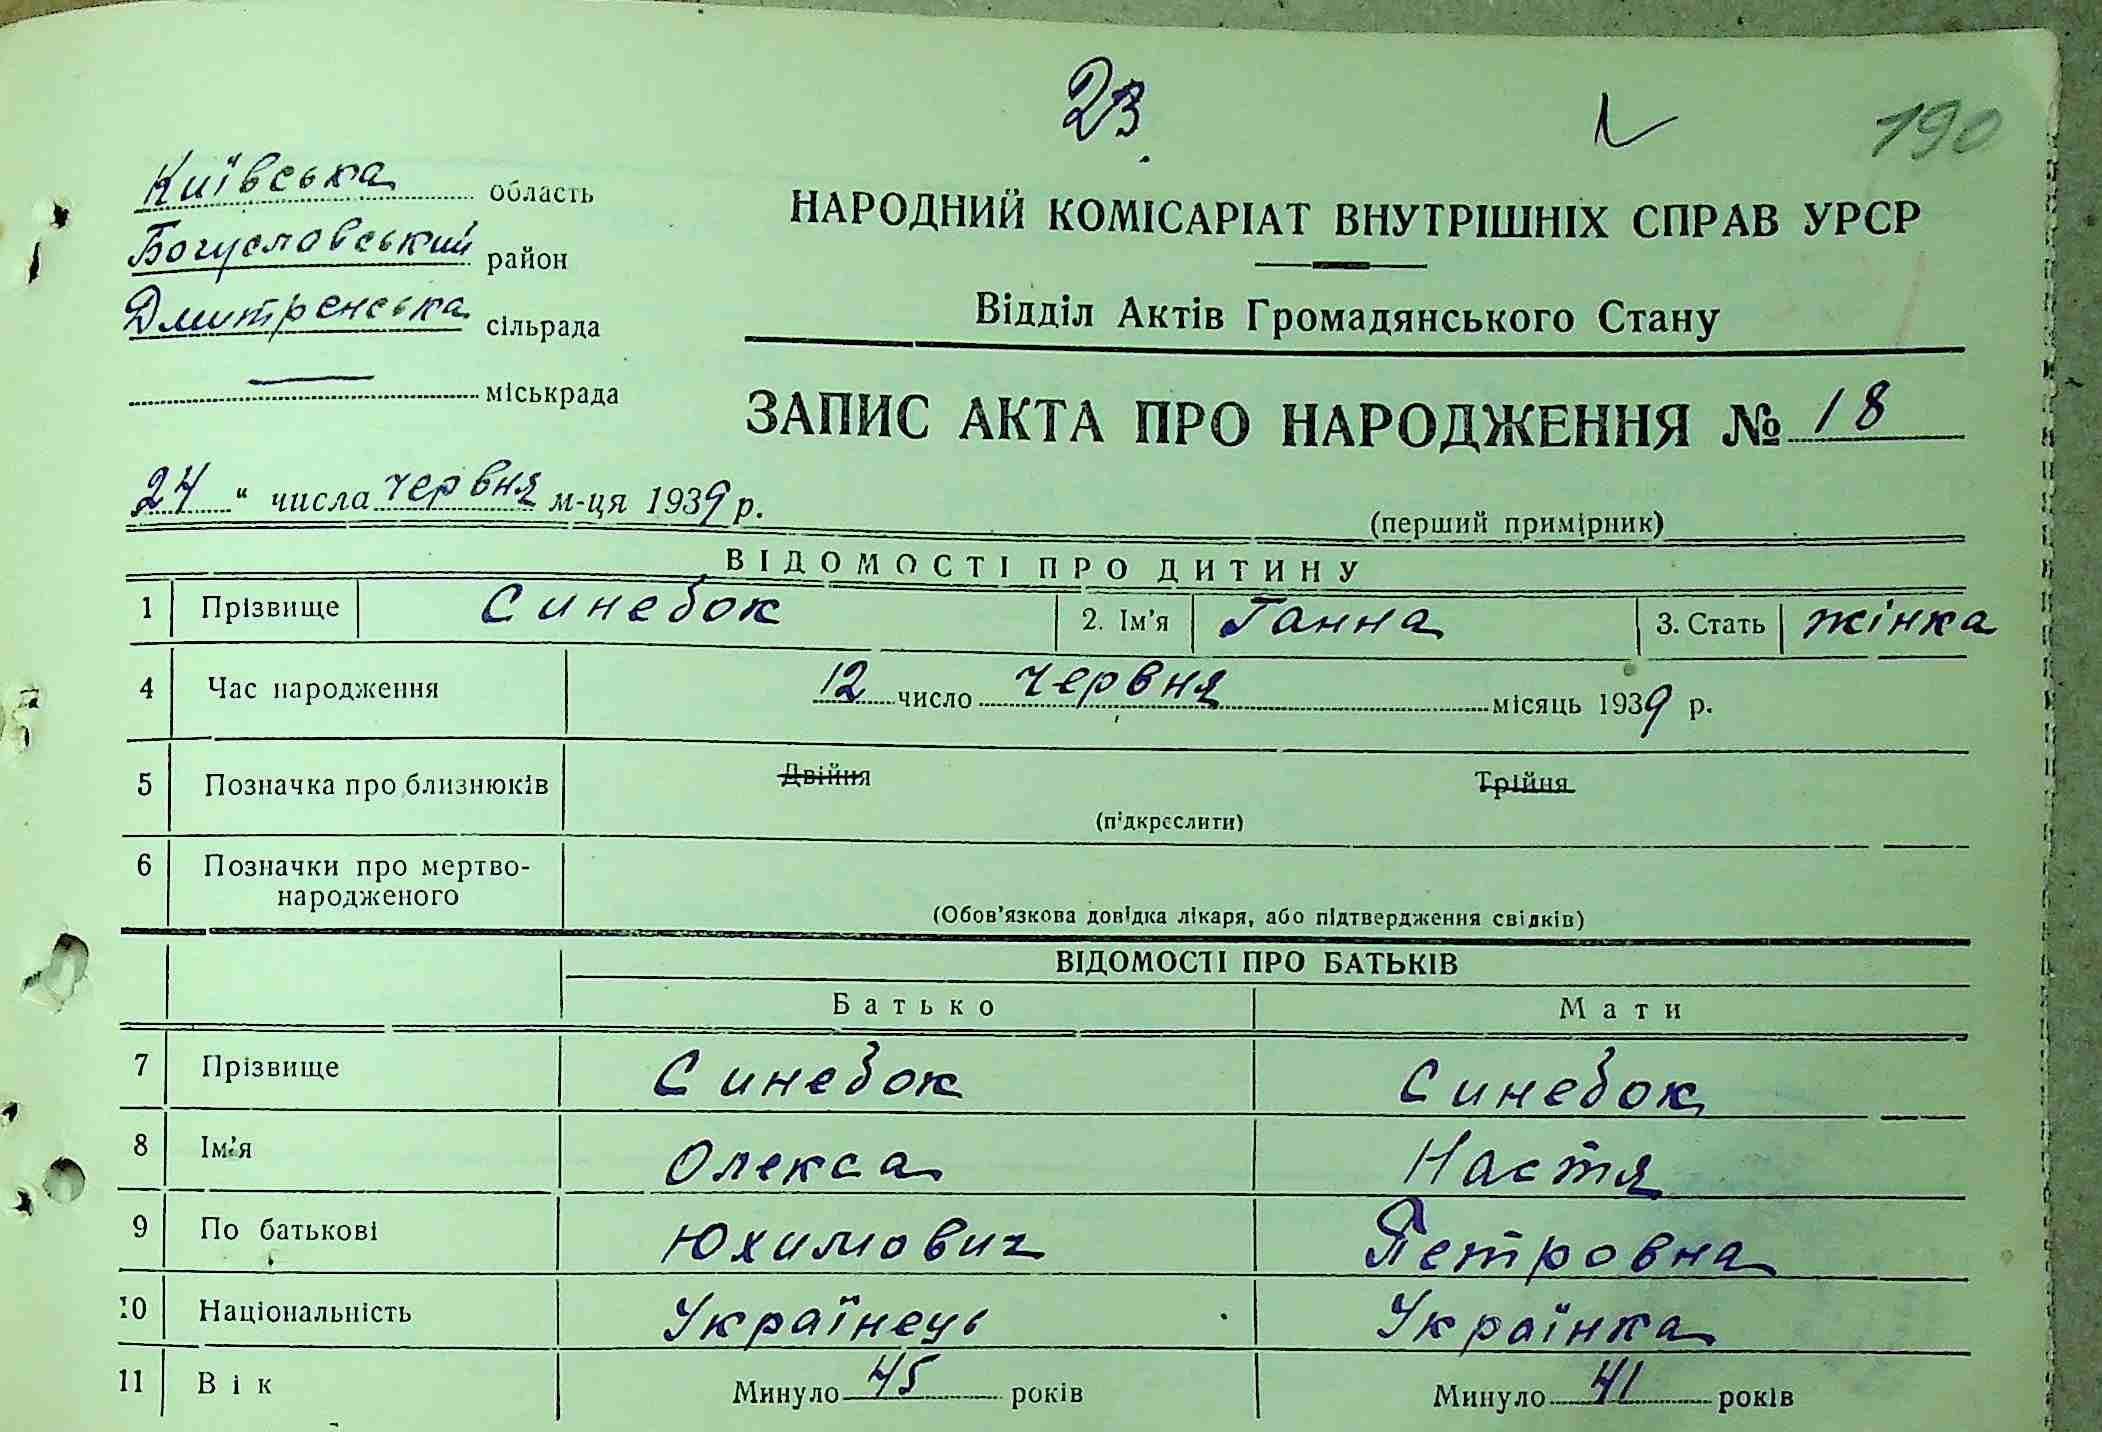 23.
190
Київська область
Богуславський район
Дмитренська сільрада
міськрада
НАРОДНИЙ КОМІСАРІАТ ВНУТРІШНІХ СПРАВ УРСР
Відділ Актів Громадянського Стану
ЗАПИС АКТА ПРО НАРОДЖЕННЯ № 18
24 " числа червня м-ця 1939 р.
(перший примірник)
ВІДОМОСТІ ПРО ДИТИНУ
1 Прізвище Синебок 2. Ім'я Ганна 3. Стать жінка
4 Час народження 12 число червня місяць 1939 р.
5 Позначка про близнюків Двійня Трійня
(підкреслити)
6 Позначки про мертво-
народженого
(Обов'язкова довідка лікаря, або підтвердження свідків)
ВІДОМОСТІ ПРО БАТЬКІВ
Батько Мати
7 Прізвище Синебок Синебок
8 Ім'я Олекса Настя
9 По батькові Юхимович Петровна
10 Національність Українець Українка
11 Вік Минуло 45 років Минуло 41 років